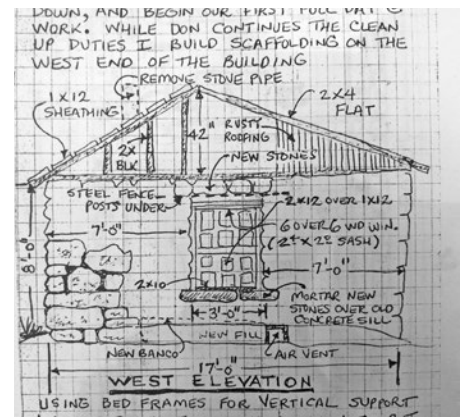 DOWN, AND BEGIN OUR FIRST FULL DAY
WORK. WHILE DON CONTINUES THE CLEAN
UP DUTIES I BUILD SCAFFOLDING ON THE
WEST END OF THE BUILDING
REMOVE STOVE PIPE
1X12
SHEATHING
2X4
FLAT
42"
RUSTY
ROOFING
2X
BLK
NEW STONES
STEEL FENCE
POSTS UNDER
2X12 OVER 1X12
7'-0"
6 OVER 6 WD WIN.
SASH)
8'-0"
7'-0"
2X10
3'-0"
MORTAR NEW
STONES OVER OLD
CONCRETE SILL
NEW FILL
NEW BANCO
AIR VENT
17'-0"
WEST ELEVATION
USING BED FRAMES FOR VERTICAL SUPPORT